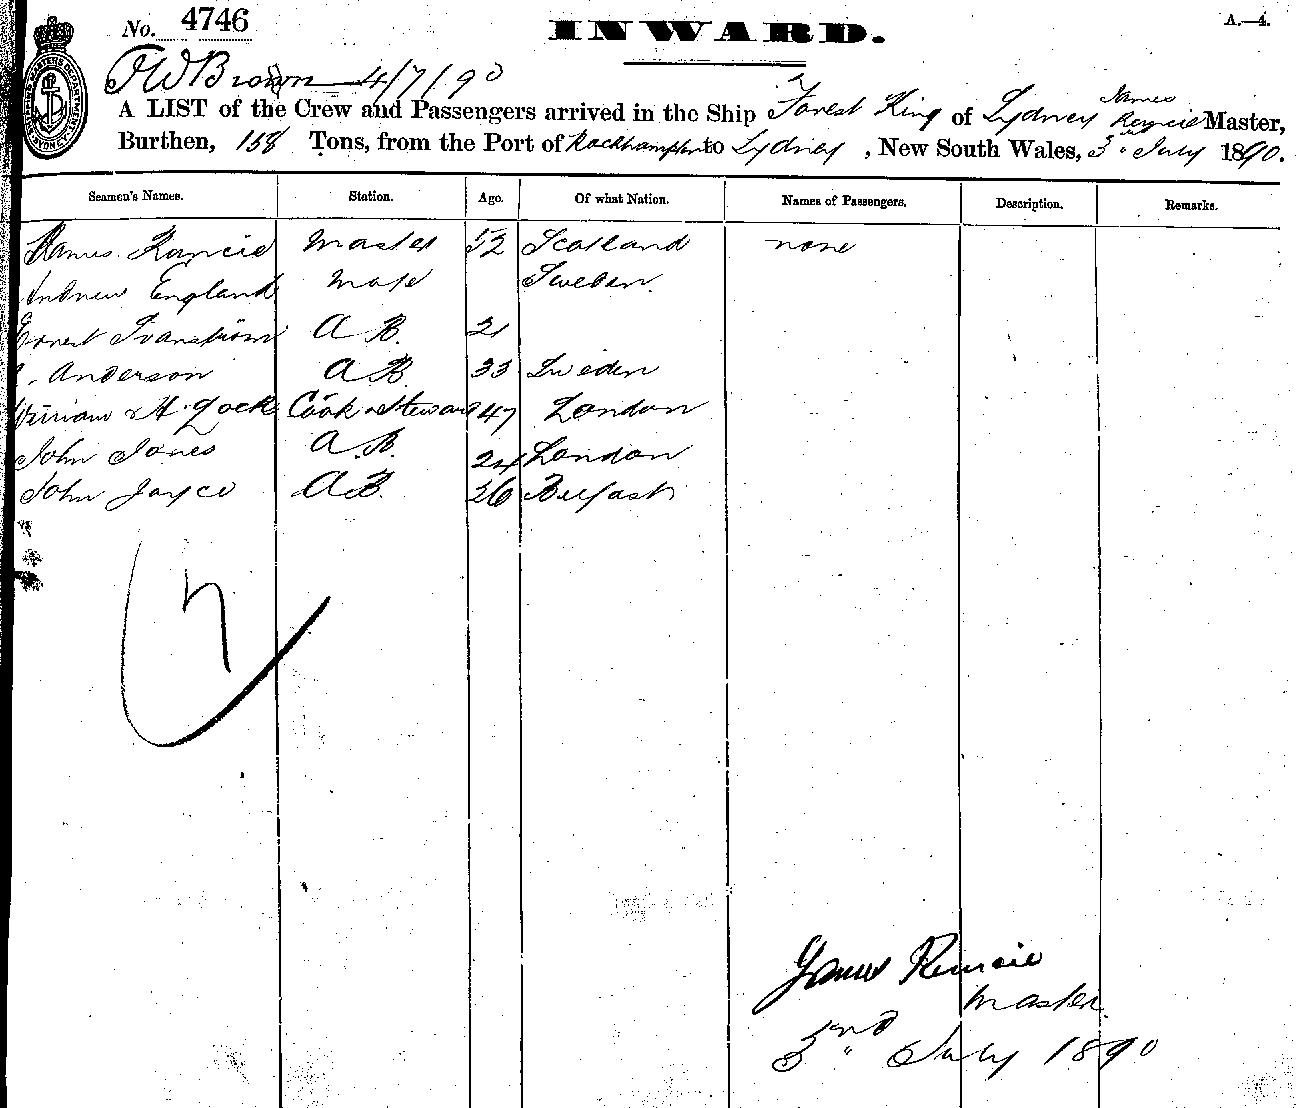 No. 4746
INWARD.
A.—4.
F W Brown 4/7/90
A LIST of the Crew and Passengers arrived in the Ship Forest King of Sydney James Rencie Master,
Burthen, 158 Tons, from the Port of Rockhampton to Sydney, New South Wales, 3" July 1890.
Seamen's Names. Station. Age. Of what Nation. Names of Passengers. Description. Remarks.
James Rencie Master 52 Scotland none
Andrew England Mate Sweden.
Ernest A.B. 21
Anderson A B 33 Sweden
William H. Cook & Steward 47 London
John Jones A.B. 24 London
John Joyce A.B. 36 Belfast
7
James Rencie
Master.
3rd July 1890